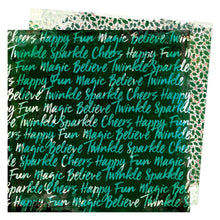 Cheers Happy Fun Magic Believe
Twinkle Sparkle Cheers Happy Fun
Fun Magic Believe Twinkle Sparkle
Happy Fun Magic Believe Twinkle
Twinkle Sparkle Cheers Happy Fun Magic
Magic Believe Twinkle Sparkle Cheers
Sparkle Cheers Happy Fun Magic Believe
Believe Twinkle Sparkle Cheers Happy Fun
Cheers Happy Fun Magic Believe Twinkle
Twinkle Sparkle Cheers Happy Fun
Happy Fun Magic Believe Twinkle
Sparkle Cheers Happy Fun Magic